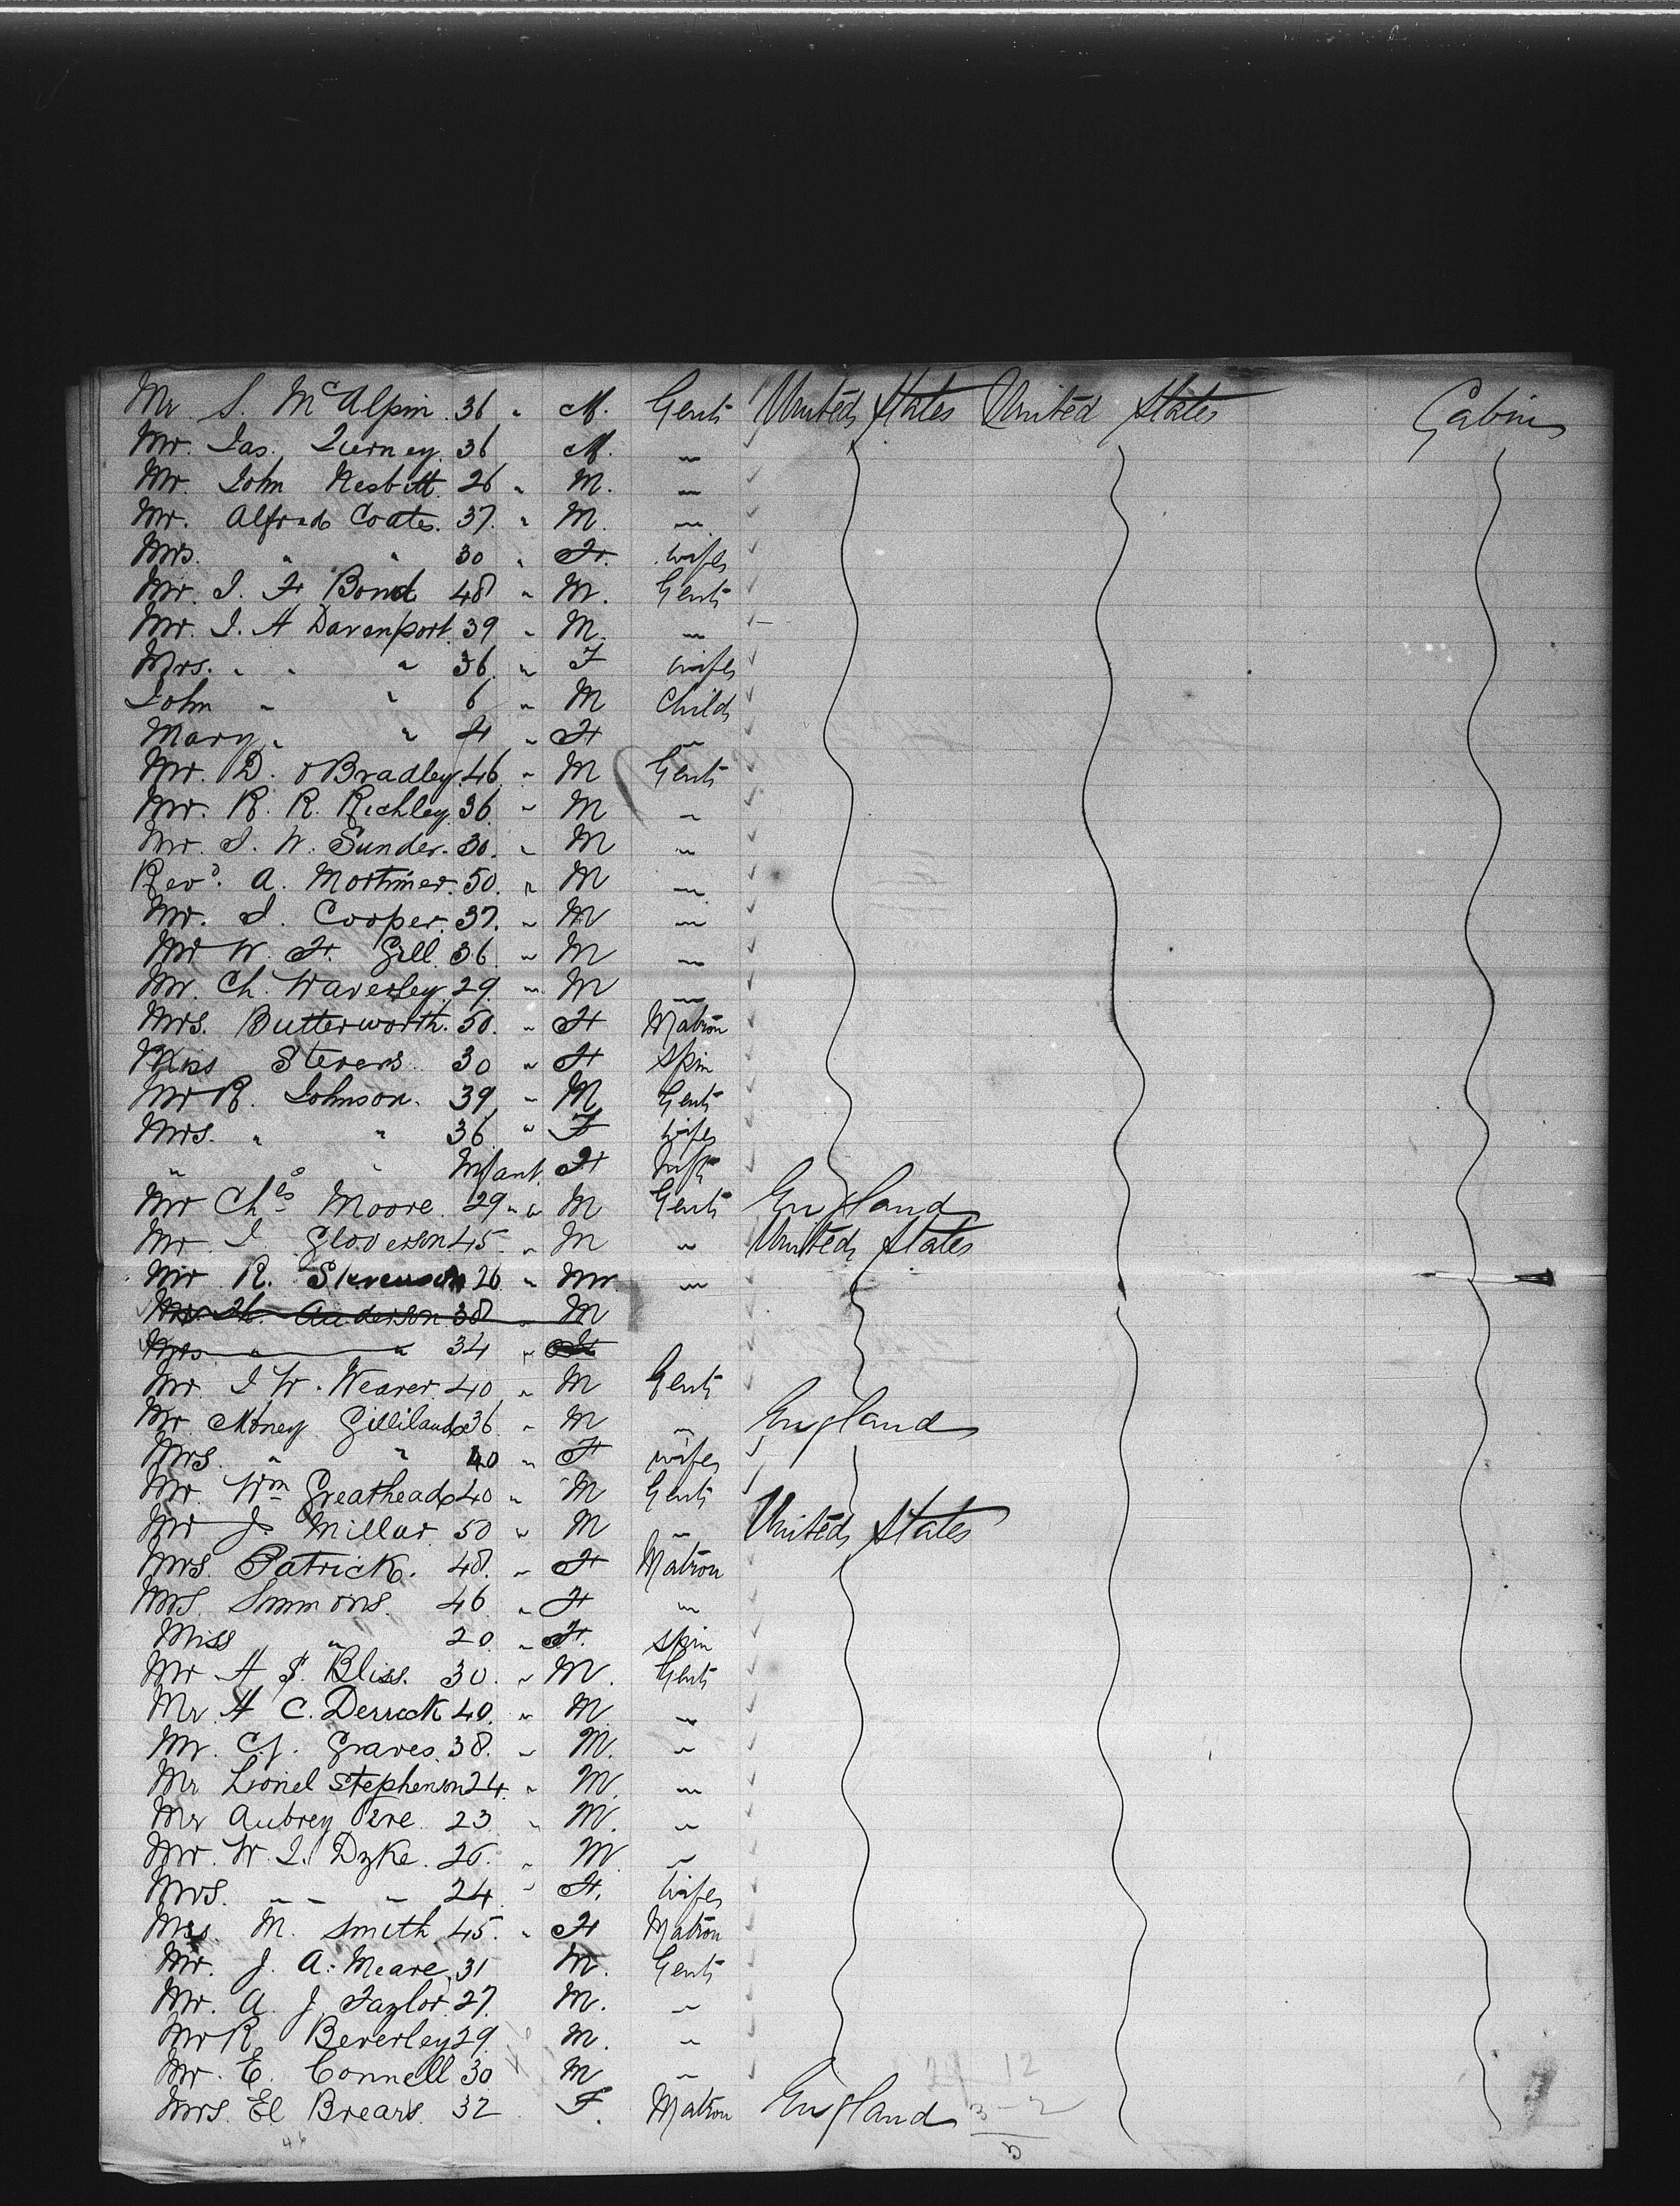 Mr S. McAlpin 36 " M. Gent United States United States Cabin
Mr. Jas. Tierney. 36 M. "
Mr. John Nesbitt. 26 " M. "
Mr. Alfred Coates. 37. " M. "
Mrs. " " 30 " F. wife
Mr. J. F Bond 48 " M. Gent
Mr. J. H Davenport. 39 " M. "
Mrs. " " " 36. " F wife
John " " 6 " M Child
Mary " " 4 " F "
Mr. D. O Bradley. 46 " M Gent
Mr. R. R. Richley. 36. " M "
Mr. J. W. Sunder. 30. " M "
Revd. A. Mortimer. 50. " M "
Mr. J. Cooper. 37. " M "
Mr W. F. Gill. 36. " M "
Mr. Ch. Waverley. 29. " M "
Mrs. Butterworth. 50. " F Matron
Miss Stevens. 30 " F Spin
Mr R. Johnson. 39 " M Gent
Mrs. " " 36 " F wife
" " Infant. F
Mr Chas Moore. 29 " " M Gent England
Mr. J Gloverson 45. " M " United States
Mr R. Stevenson 26 " M "
Anderson 38 M
Mrs " " 34 " F
Mr. J W. Weaver. 40 " M Gent
Mr. Money Gilliland 36 " M " England
Mrs. " " 40 " F wife
Mr. Wm Greathead 40 " M Gent
Mr J. Millar. 50 " M " United States
Mrs. Patrick. 48. " F Matron
Mrs. Simmons. 46 " F "
Miss " 20. " F. Spin
Mr H S. Bliss. 30. " M. Gent
Mr. H C. Derrick 40. " M "
Mr. C.J. Graves. 38. " M. "
Mr Lionel Stephenson 24. " M. "
Mr Aubrey Vere. 23. " M. "
Mr. W. J. Dyke. 26. " M. "
Mrs. " " " 24 " F. wife
Mrs. M. Smith 45. " F Matron
Mr. J. A. Meare. 31 M. Gent
Mr. A. J. Taylor. 27. M. "
Mr R. Beverley 29. M. "
Mr. E. Connell 30 M "
Mrs. El Brears. 32 F. Matron England 3 - 2
46 5